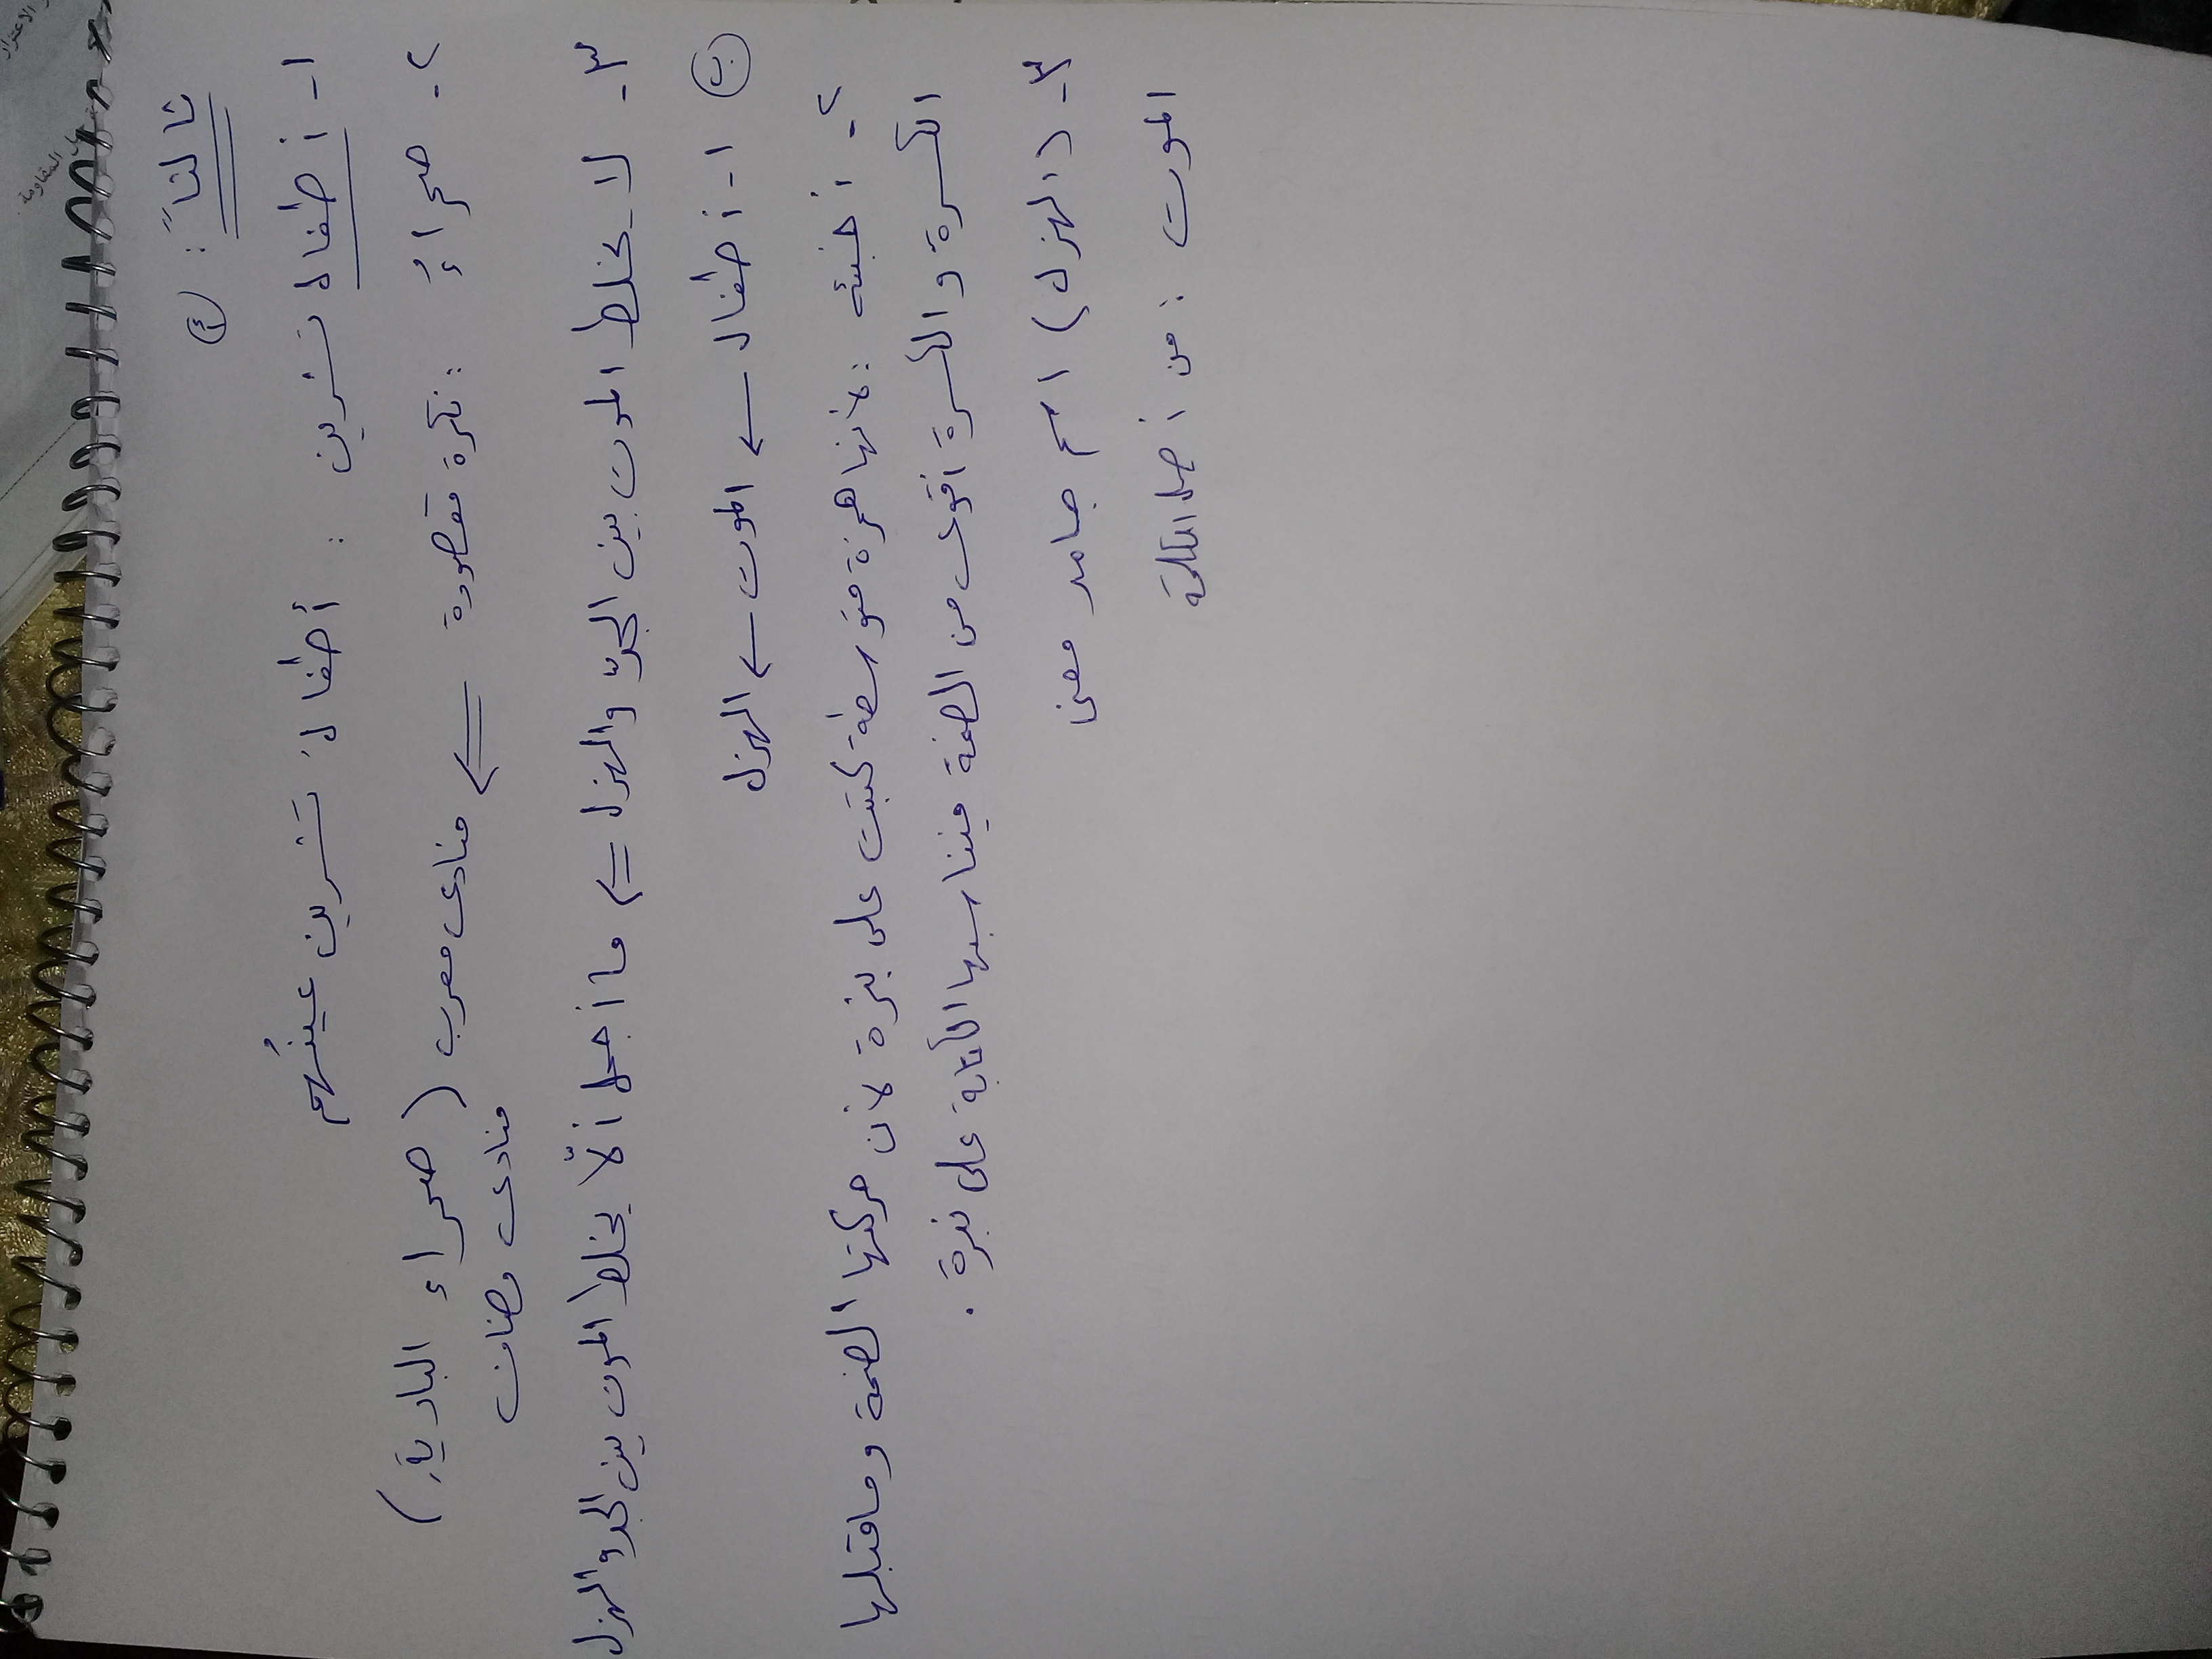 ثالثاً : (أ)
١- أطفال تشرين : أطفالَ تشرين عينُهم
٢- صحراءُ : نكرة مقصودة ⇐ منادى معرب (صحراء البادية)
منادى مضاف
٣- لا يخلط الموت بين الجدّ والهزل ⇐ ما أجمل ألّا يخلط الموت بين الجد والهزل
(ب) ١- أطفال ← الموت ← الهزل
٢- أخبئه : لأنها همزة متوسطة كتبت على نبرة لأن حركتها الضمة وماقبلها
الكسرة والكسرة أقوى من الضمة فيناسبها الكتابة على نبرة .
٣- (الهزل) اسم جامد معنى
الموت : من أصل الكلمة
المقاومة .